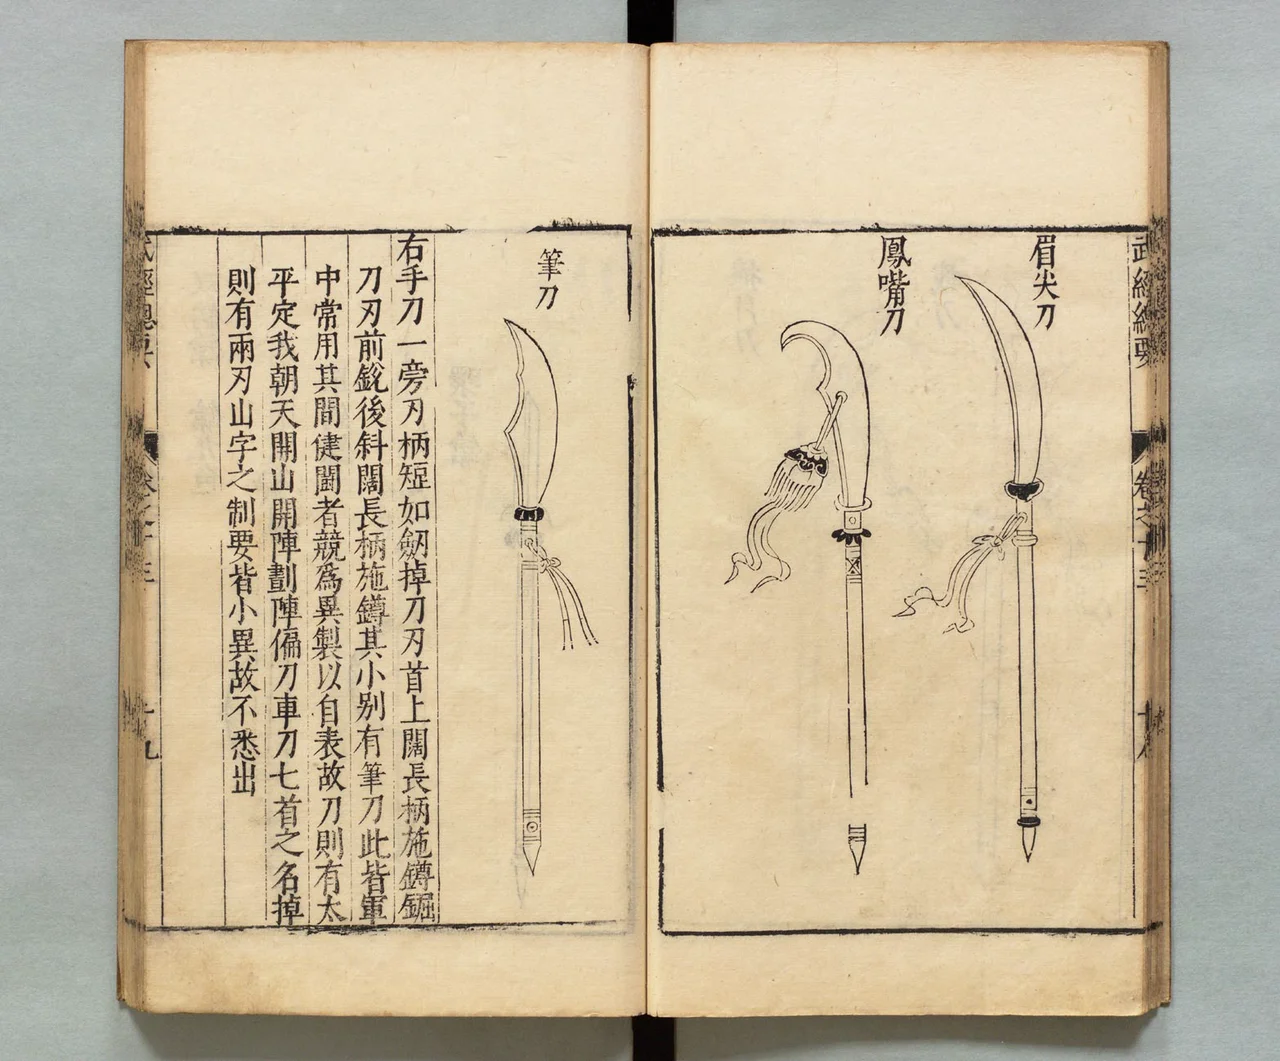 武經總要
卷之十三
眉尖刀
鳳嘴刀
筆刀
右手刀一旁刃柄短如劒掉刀刃首上闊長柄施鐏鋸
刀刃前銳後斜闊長柄施鐏其小别有筆刀此皆軍
中常用其間健鬬者競爲異製以自表故刀則有太
平定我朝天開山開陣劃陣偏刀車刀七首之名掉
則有兩刃山字之制要皆小異故不悉出
武經總要
十九